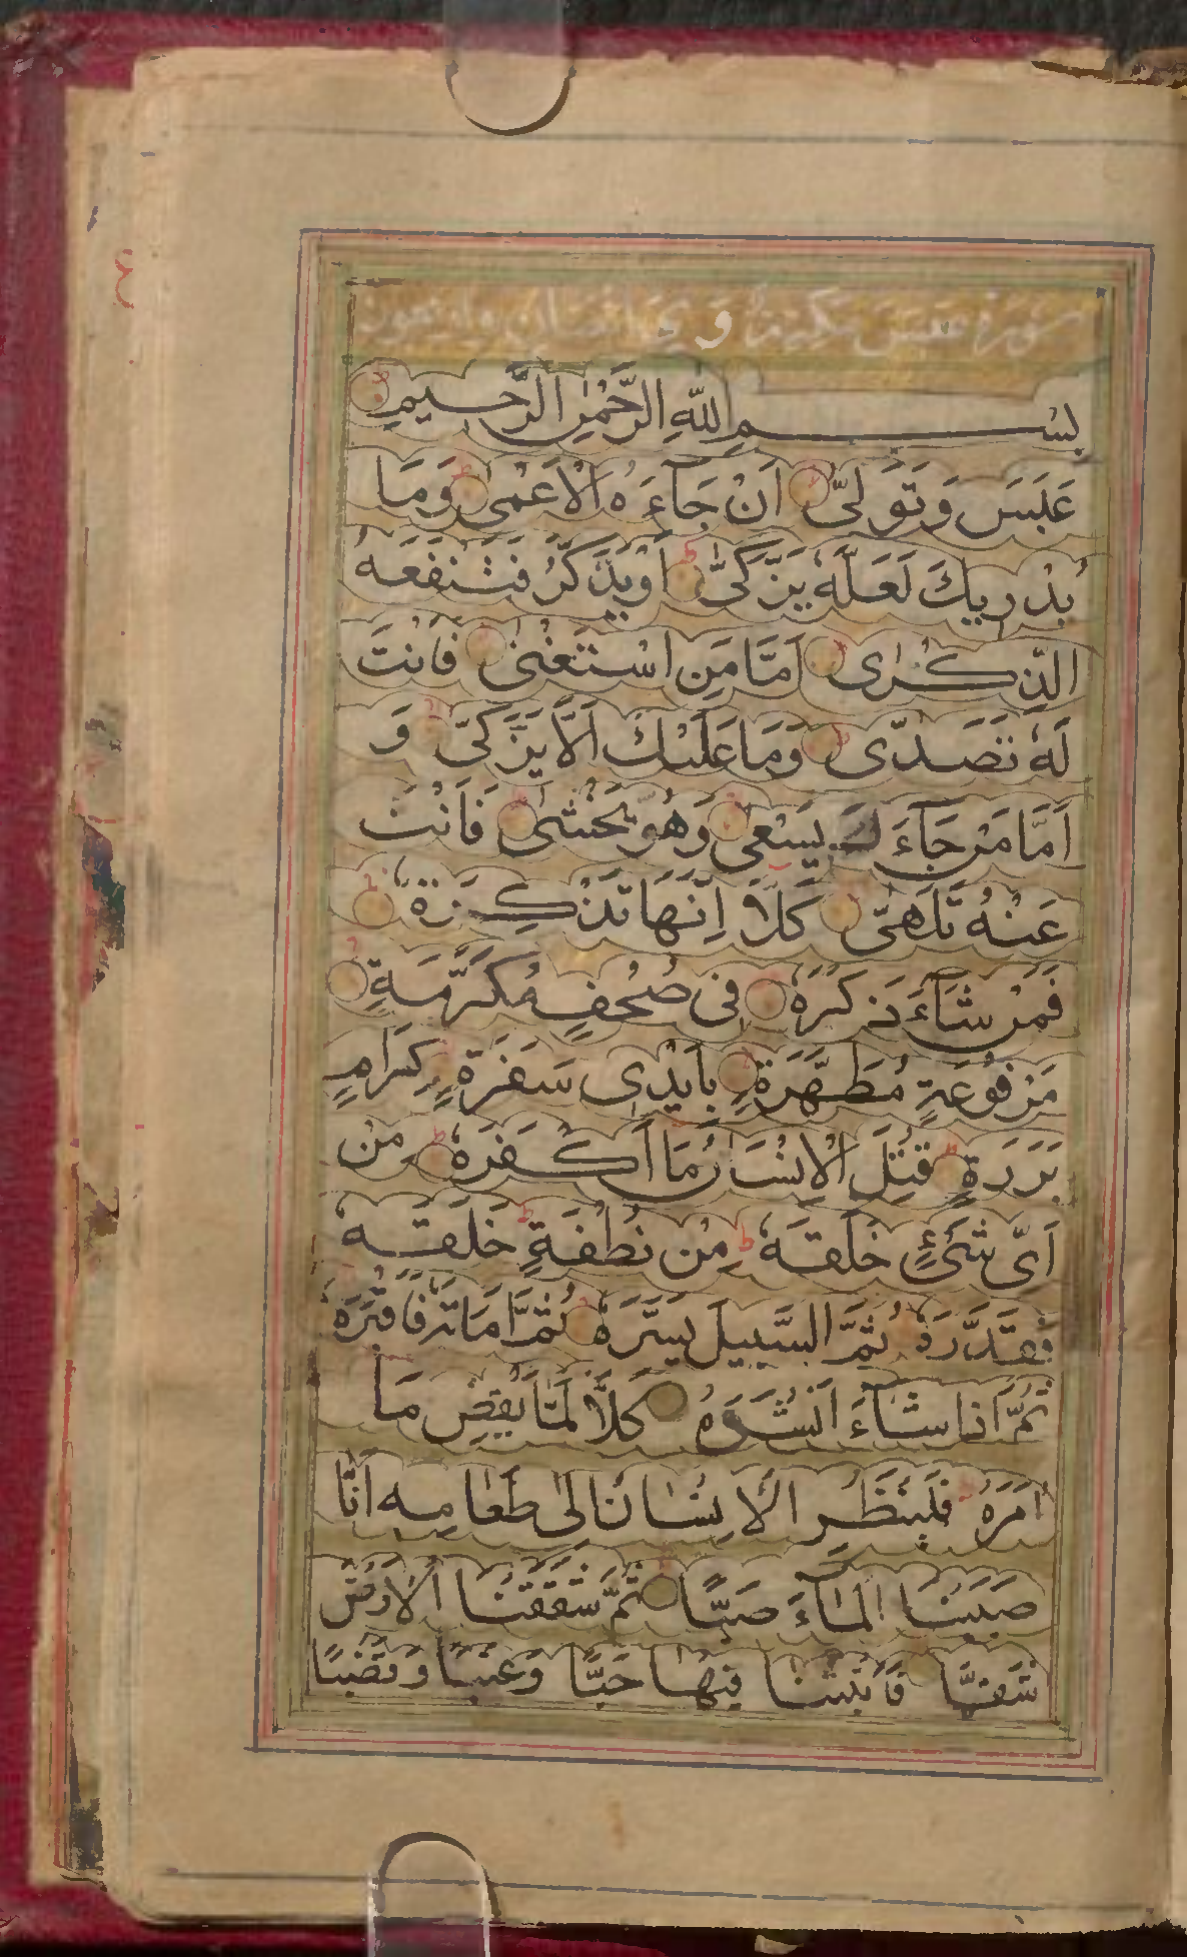 سورة عبس مكية و اثنان واربعون
بِسْمِ اللّٰهِ الرَّحْمٰنِ الرَّحِيْمِ
عَبَسَ وَتَوَلّٰىٓ اَنْ جَآءَهُ الْاَعْمٰى وَمَا
يُدْرِيكَ لَعَلَّهٗ يَزَّكّٰىٓ اَوْ يَذَّكَّرُ فَتَنْفَعَهُ
الذِّكْرٰى اَمَّا مَنِ اسْتَغْنٰى فَاَنْتَ
لَهٗ تَصَدّٰى وَمَا عَلَيْكَ اَلَّا يَزَّكّٰى وَ
اَمَّا مَنْ جَآءَكَ يَسْعٰى وَهُوَ يَخْشٰى فَاَنْتَ
عَنْهُ تَلَهّٰى كَلَّا اِنَّهَا تَذْكِرَةٌ
فَمَنْ شَآءَ ذَكَرَهٗ فِى صُحُفٍ مُكَرَّمَةٍ
مَرْفُوعَةٍ مُطَهَّرَةٍ بِاَيْدِى سَفَرَةٍ كِرَامٍ
بَرَرَةٍ قُتِلَ الْاِنْسَانُ مَا اَكْفَرَهٗ مِنْ
اَىِّ شَىْءٍ خَلَقَهٗ مِنْ نُطْفَةٍ خَلَقَهٗ
فَقَدَّرَهٗ ثُمَّ السَّبِيلَ يَسَّرَهٗ ثُمَّ اَمَاتَهٗ فَاَقْبَرَهٗ
ثُمَّ اِذَا شَآءَ اَنْشَرَهٗ كَلَّا لَمَّا يَقْضِ مَا
اَمَرَهٗ فَلْيَنْظُرِ الْاِنْسَانُ اِلٰى طَعَامِهٖ اَنَّا
صَبَبْنَا الْمَآءَ صَبًّا ثُمَّ شَقَقْنَا الْاَرْضَ
شَقًّا فَاَنْبَتْنَا فِيْهَا حَبًّا وَعِنَبًا وَقَضْبًا